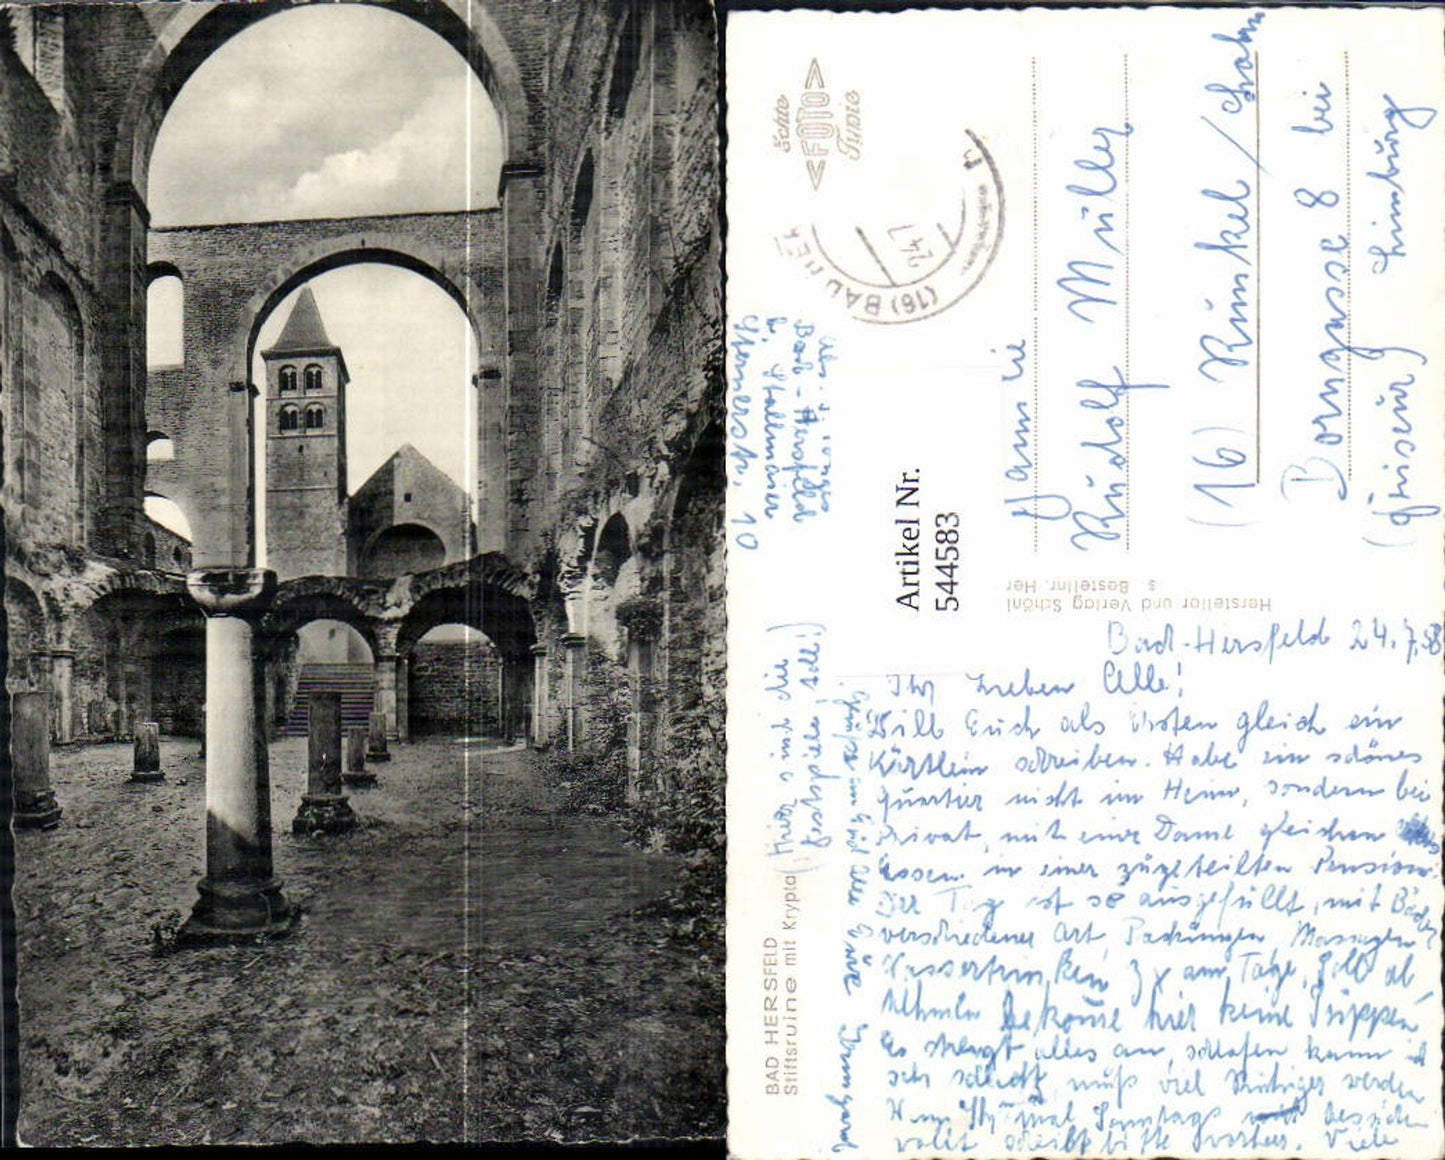 echte
<FOTO>
Typie
(16) BAD HER
24.7
Abs. :
Bad-Hersfeld
b. Hallmaier
10
Artikel Nr.
544583
Familie
Rudolf Müller
(16) Runkel / Lahn
Borngasse 8 bei
Limburg
Hersteller und Verlag Schöni
s Bestellnr. Her
BAD HERSFELD
Stiftsruine mit Krypta
(Hier sind die
Festspiele, toll!)
Bad-Hersfeld 24.7.58
Ihr Lieben Alle!
Will Euch als Erstes gleich ein
Kärtlein schreiben. Habe ein schönes
Quartier nicht im Heim, sondern bei
Privat, mit einer Dame gleichen
Essen in einer zugeteilten Pension.
Der Tag ist so ausgefüllt, mit Bäder
verschiedener Art, Packungen, Massagen
Wassertrinken 3 x am Tage. Soll ab
nehmen bekomme hier keine Suppen,
Es strengt alles an, schlafen kann ich
sehr schlecht, muß viel ruhiger werden
Wenn Ihr mal Sonntags besuchen
wollt schreibt bitte vorher. Viele
Grüße an Euch alle Eure Irmgard